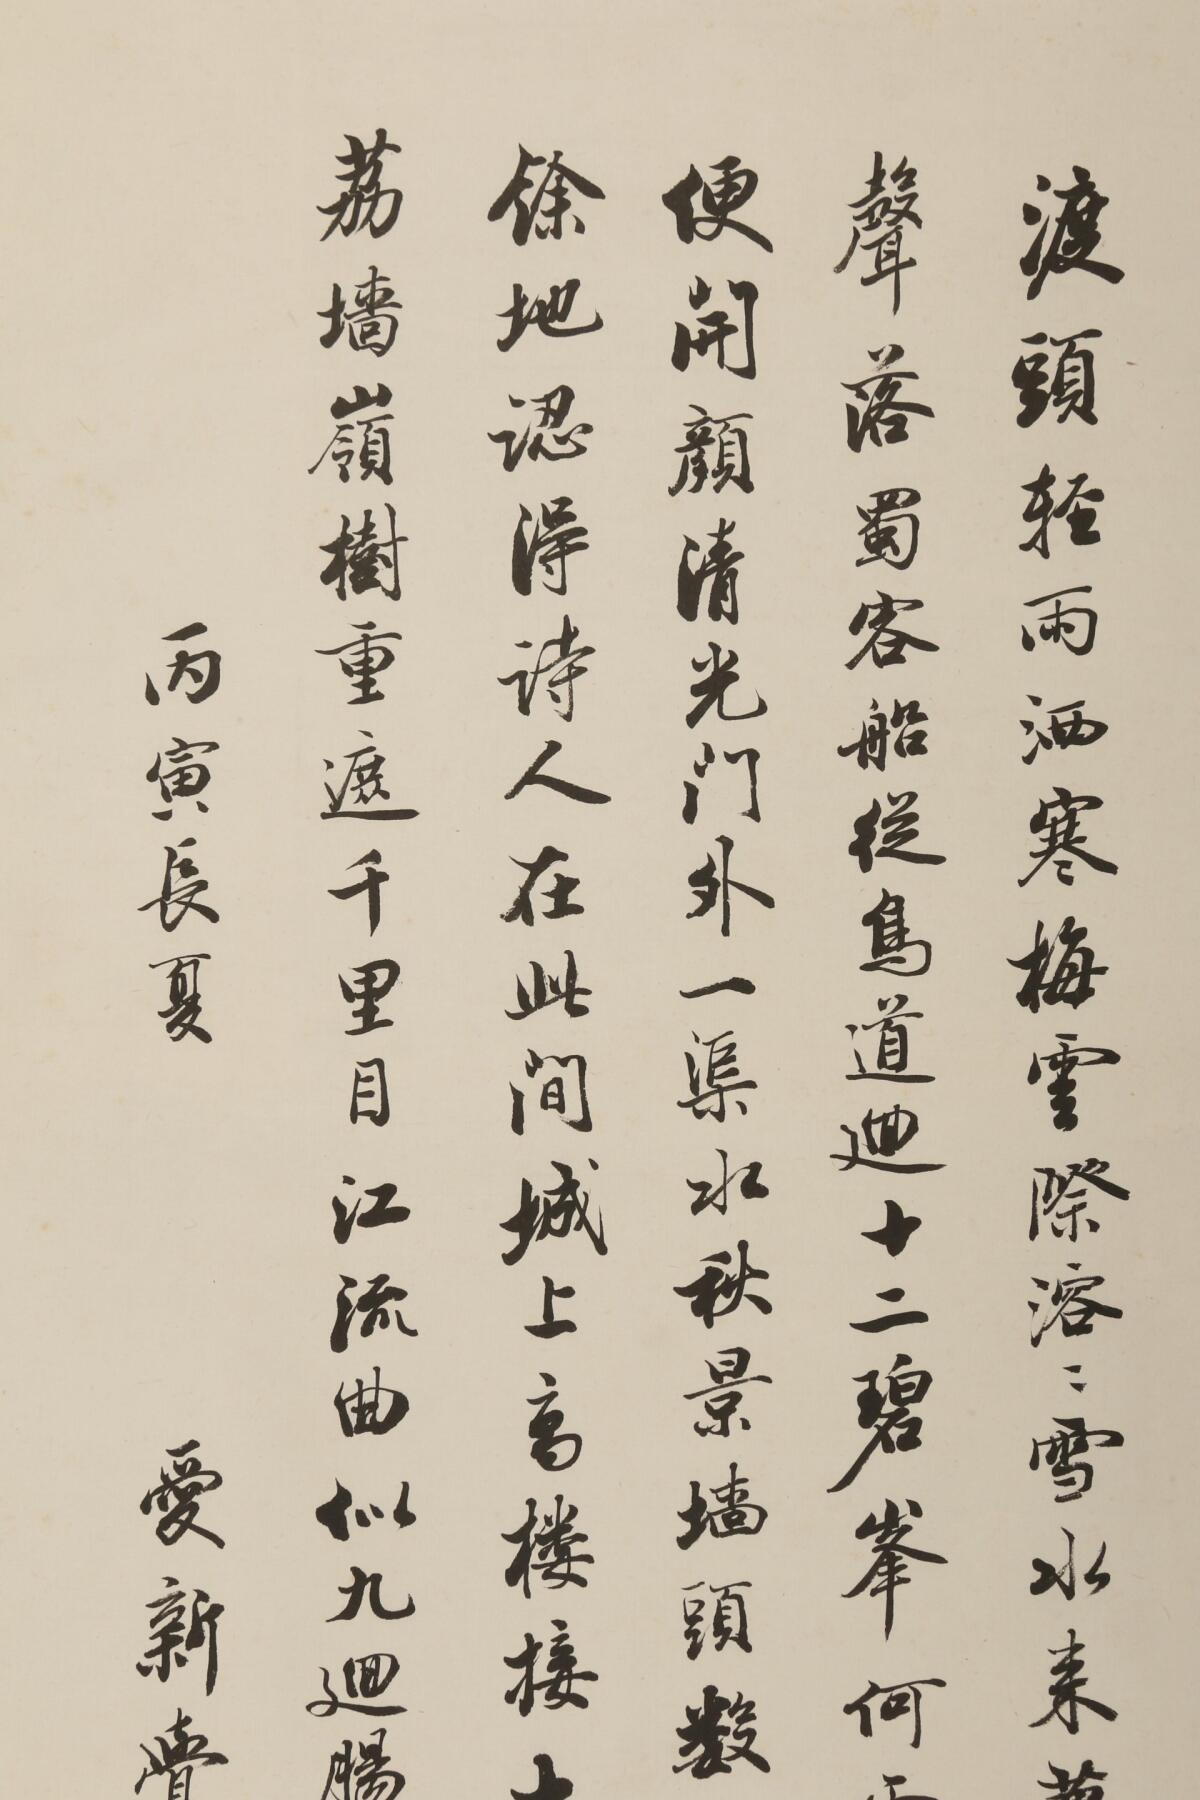 渡頭輕雨洒寒梅雲際溶〻雪水来
聲落蜀客船從鳥道迴十二碧峯何
便開顔清光門外一渠水秋景墙頭数
餘地認得詩人在此間城上高楼接大
荔墙嶺樹重遮千里目江流曲似九迴腸
丙寅長夏
愛新覺